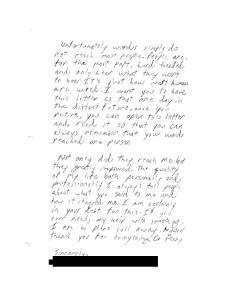 Unfortunately words simply do
not reach most people. People are,
for the most part, hard headed
and only hear what they want
to hear. It's just how most humans
are wired. I want you to have
this letter so that one day in
the distant future, once you
retire, you can open this letter
and read it so that you can
always remember that your words
reached one person.
Not only did they reach me but
they greatly improved the quality
of my life both personally and
professionally. I always tell people
about what you said to me and
how it changed me. I am certainly
in your debt for this. If you
ever need my help with something,
I am a phone call away.
thank you for everything Dr.
Sincerely,